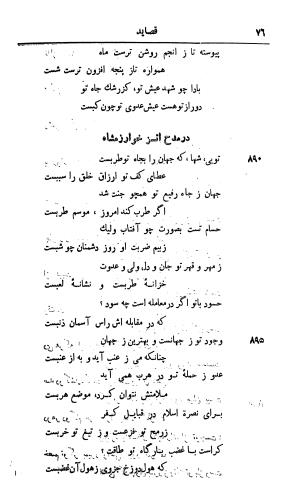 ۷۶ قصاید
پیوسته تا ز انجم روشن ترست ماه
همواره تاز پنجه افزون ترست شست
بادا چو شهد عیش تو، کز رشك جاه تو
دور از تو هست عیش عدوی تو چون کبست
در مدح اتسز خوارزمشاه
۸۹۰ تویی، شها، که جهان را بجاه تو طربست
عطای کف تو ارزاق خلق را سببست
جهان ز جاه رفیع تو همچو جنت شد
اگر طرب کند امروز، موسم طربست
حسام تست بصورت چو آفتاب وليك
زبیم ضربت او روز دشمنان چو شبست
ز مهر و قهر تو جان و دل ولی و عدوت
خزانهٔ طربست و نشانهٔ لعبست
حسود باتو اگر در معامله است چه سود؟
که در مقابله اش راس آسمان ذنبست
۸۹۵ وجود تو ز جهانست و بهترین ز جهان
چنانکه می ز عنب آید و به از عنبست
عدو ز حملهٔ تو در هرب همی آید
ملامتش نتوان کرد، موضع هربست
برای نصرة اسلام در قبایل کفر
ز رمح تو خزعست و ز تیغ تو خربست
کراست با غضب بنارگاه تو طاقت؟
که هول دوزخ جزوی زهول آن غضبست